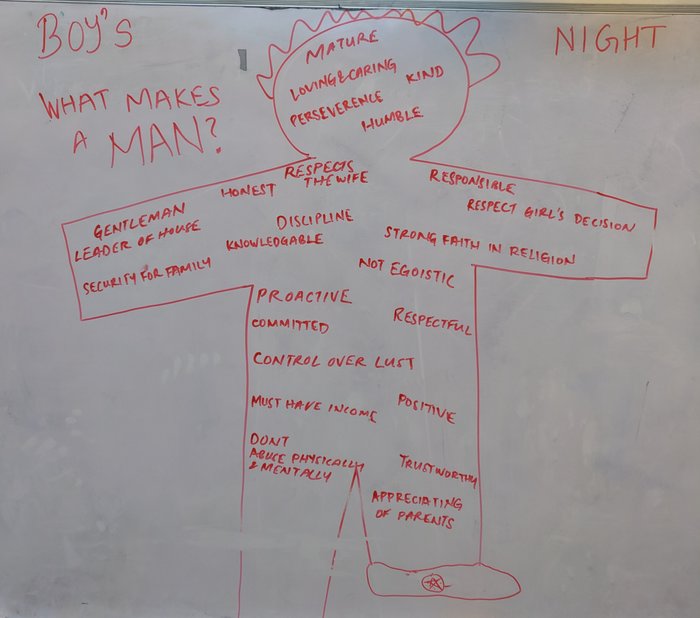 BOY'S
NIGHT
WHAT MAKES
A MAN?
MATURE
LOVING & CARING
KIND
PERSEVERENCE
HUMBLE
RESPECTS
THE WIFE
HONEST
RESPONSIBLE
GENTLEMAN
RESPECT GIRL'S DECISION
LEADER OF HOUSE
DISCIPLINE
KNOWLEDGABLE
STRONG FAITH IN RELIGION
SECURITY FOR FAMILY
NOT EGOISTIC
PROACTIVE
COMMITTED
RESPECTFUL
CONTROL OVER LUST
MUST HAVE INCOME
POSITIVE
DONT
ABUSE PHYSICALLY
& MENTALLY
TRUSTWORTHY
APPRECIATING
OF PARENTS